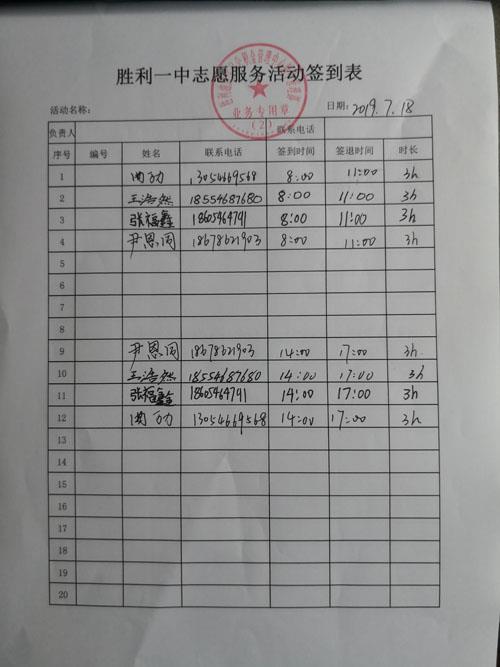 胜利一中志愿服务活动签到表
业务专用章
(2)
活动名称: 日期: 2019.7.18
负责人 联系电话
序号 编号 姓名 联系电话 签到时间 签退时间 时长
1 13054669568 8:00 11:00 3h
2 王浩然 18554687680 8:00 11:00 3h
3 张福鑫 18605464791 8:00 11:00 3h
4 尹恩同 18678621903 8:00 11:00 3h
5
6
7
8
9 尹恩同 18678621903 14:00 17:00 3h
10 王浩然 18554687680 14:00 17:00 3h
11 张福鑫 18605464791 14:00 17:00 3h
12 13054669568 14:00 17:00 3h
13
14
15
16
17
18
19
20